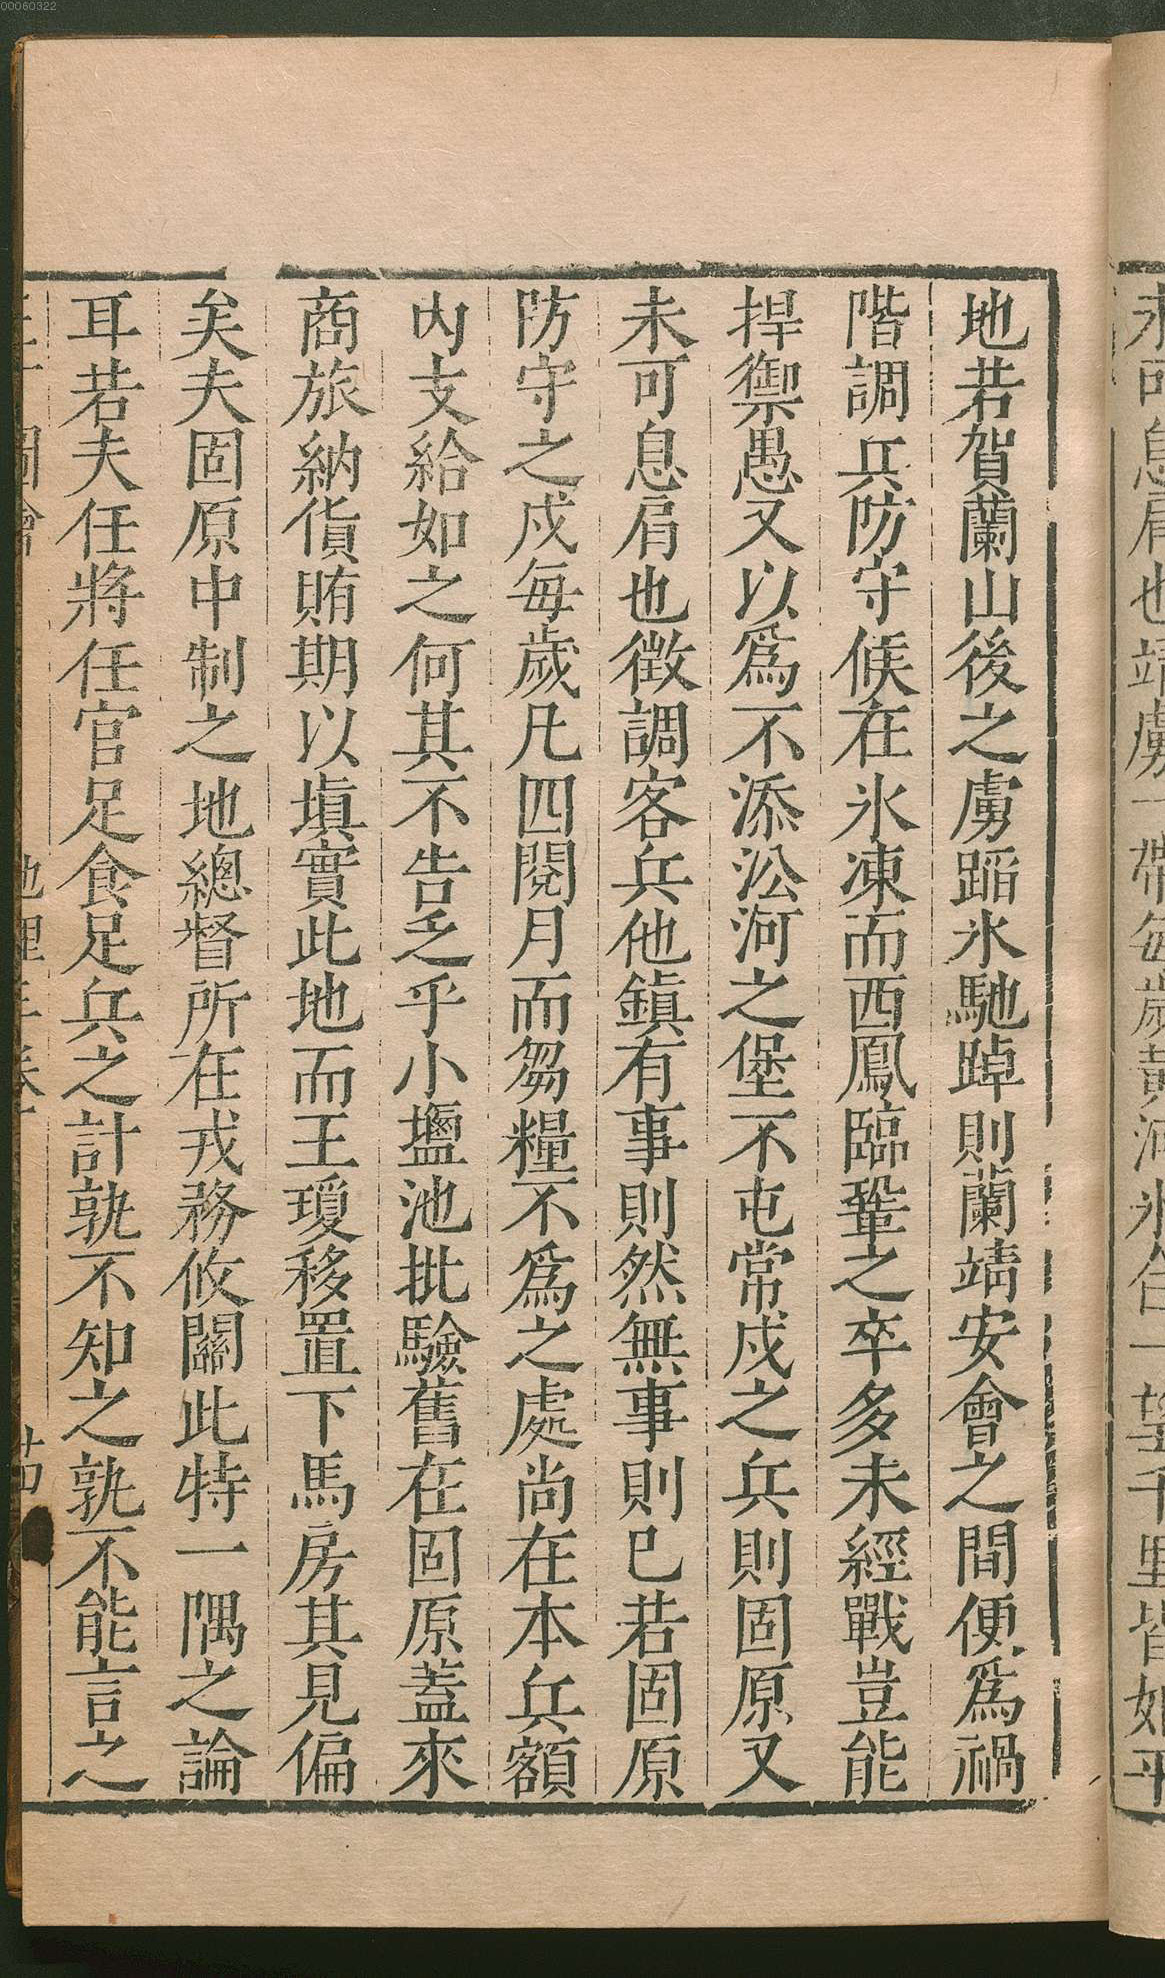 00060322
永可息肩也靖虜一帶每歲黃河氷合一望千里皆如平
地若賀蘭山後之虜蹈氷馳踔則蘭靖安會之間便爲禍
階調兵防守候在氷凍而西鳳臨鞏之卒多未經戰豈能
捍禦愚又以爲不添㳂河之堡不屯常戍之兵則固原又
未可息肩也徵調客兵他鎮有事則然無事則已若固原
防守之戍每歲凡四閱月而芻糧不爲之處尚在本兵額
內支給如之何其不告乏乎小鹽池批驗舊在固原蓋來
商旅納貨賄期以塡實此地而王瓊移置下馬房其見偏
矣夫固原中制之地總督所在戎務攸關此特一隅之論
耳若夫任將任官足食足兵之計孰不知之孰不能言之
圖會 地理三卷 廿四